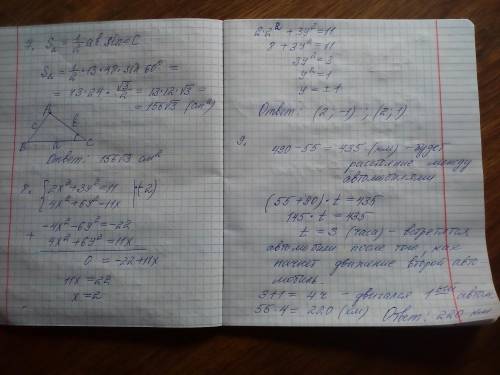 7. S△ = 1/2 ab sin∠C
S△ = 1/2 · 13 · 48 · sin 60° =
= 13 · 24 · √3/2 = 13·12·√3 =
= 156√3 (см²)
A
c b
B a C
Ответ: 156√3 см²
8. {2x² + 3y² = 11 |·(-2)
4x² + 6y² = 11x
+ -4x² - 6y² = -22
4x² + 6y² = 11x
0 = -22 + 11x
11x = 22
x = 2
2·2² + 3y² = 11
8 + 3y² = 11
3y² = 3
y² = 1
y = ±1
Ответ: (2; -1); (2; 1)
9.
490 - 55 = 435 (км) - будет
расстояние между
автомобилями
(55 + 90) · t = 435
145 · t = 435
t = 3 (часа) - встретятся
автомобили после того, как
начнет движение второй авто-
мобиль.
3+1 = 4 ч - двигался 1ый автом.
55·4 = 220 (км) Ответ: 220 км